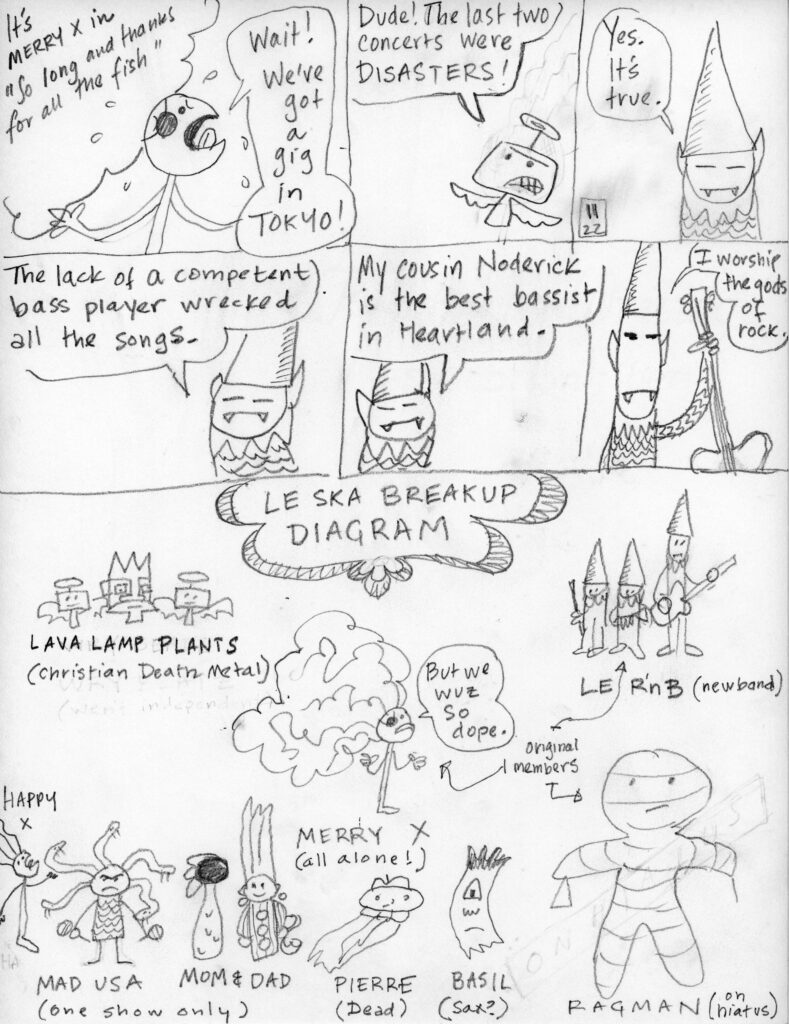 It's
MERRY X in
"So long and thanks
for all the fish"
Wait!
We've
got
a
gig
in
TOKYO!
Dude! The last two
concerts were
DISASTERS!
Yes.
It's
true.
11
22
The lack of a competent
bass player wrecked
all the songs.
My cousin Noderick
is the best bassist
in Heartland.
I worship
the gods
of
rock.
LE SKA BREAKUP
DIAGRAM
LAVA LAMP PLANTS
(Christian Death Metal)
(went independent)
But we
wuz
so
dope.
LE R'n B (new band)
original
members
HAPPY
X
MERRY X
(all alone!)
HA
MAD USA
(one show only)
MOM & DAD
PIERRE
(Dead)
BASIL
(Sax?)
RAGMAN (on
hiatus)